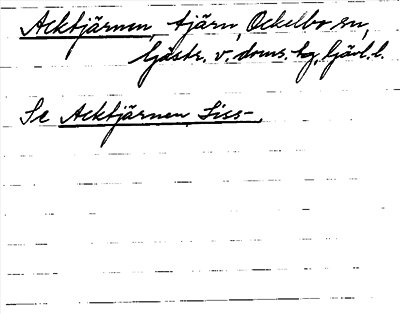 Acktjärnen, tjärn, Ockelbo sn,
Gästr. v. doms. hg, Gävl. l.
Se Acktjärnen, Siss-.